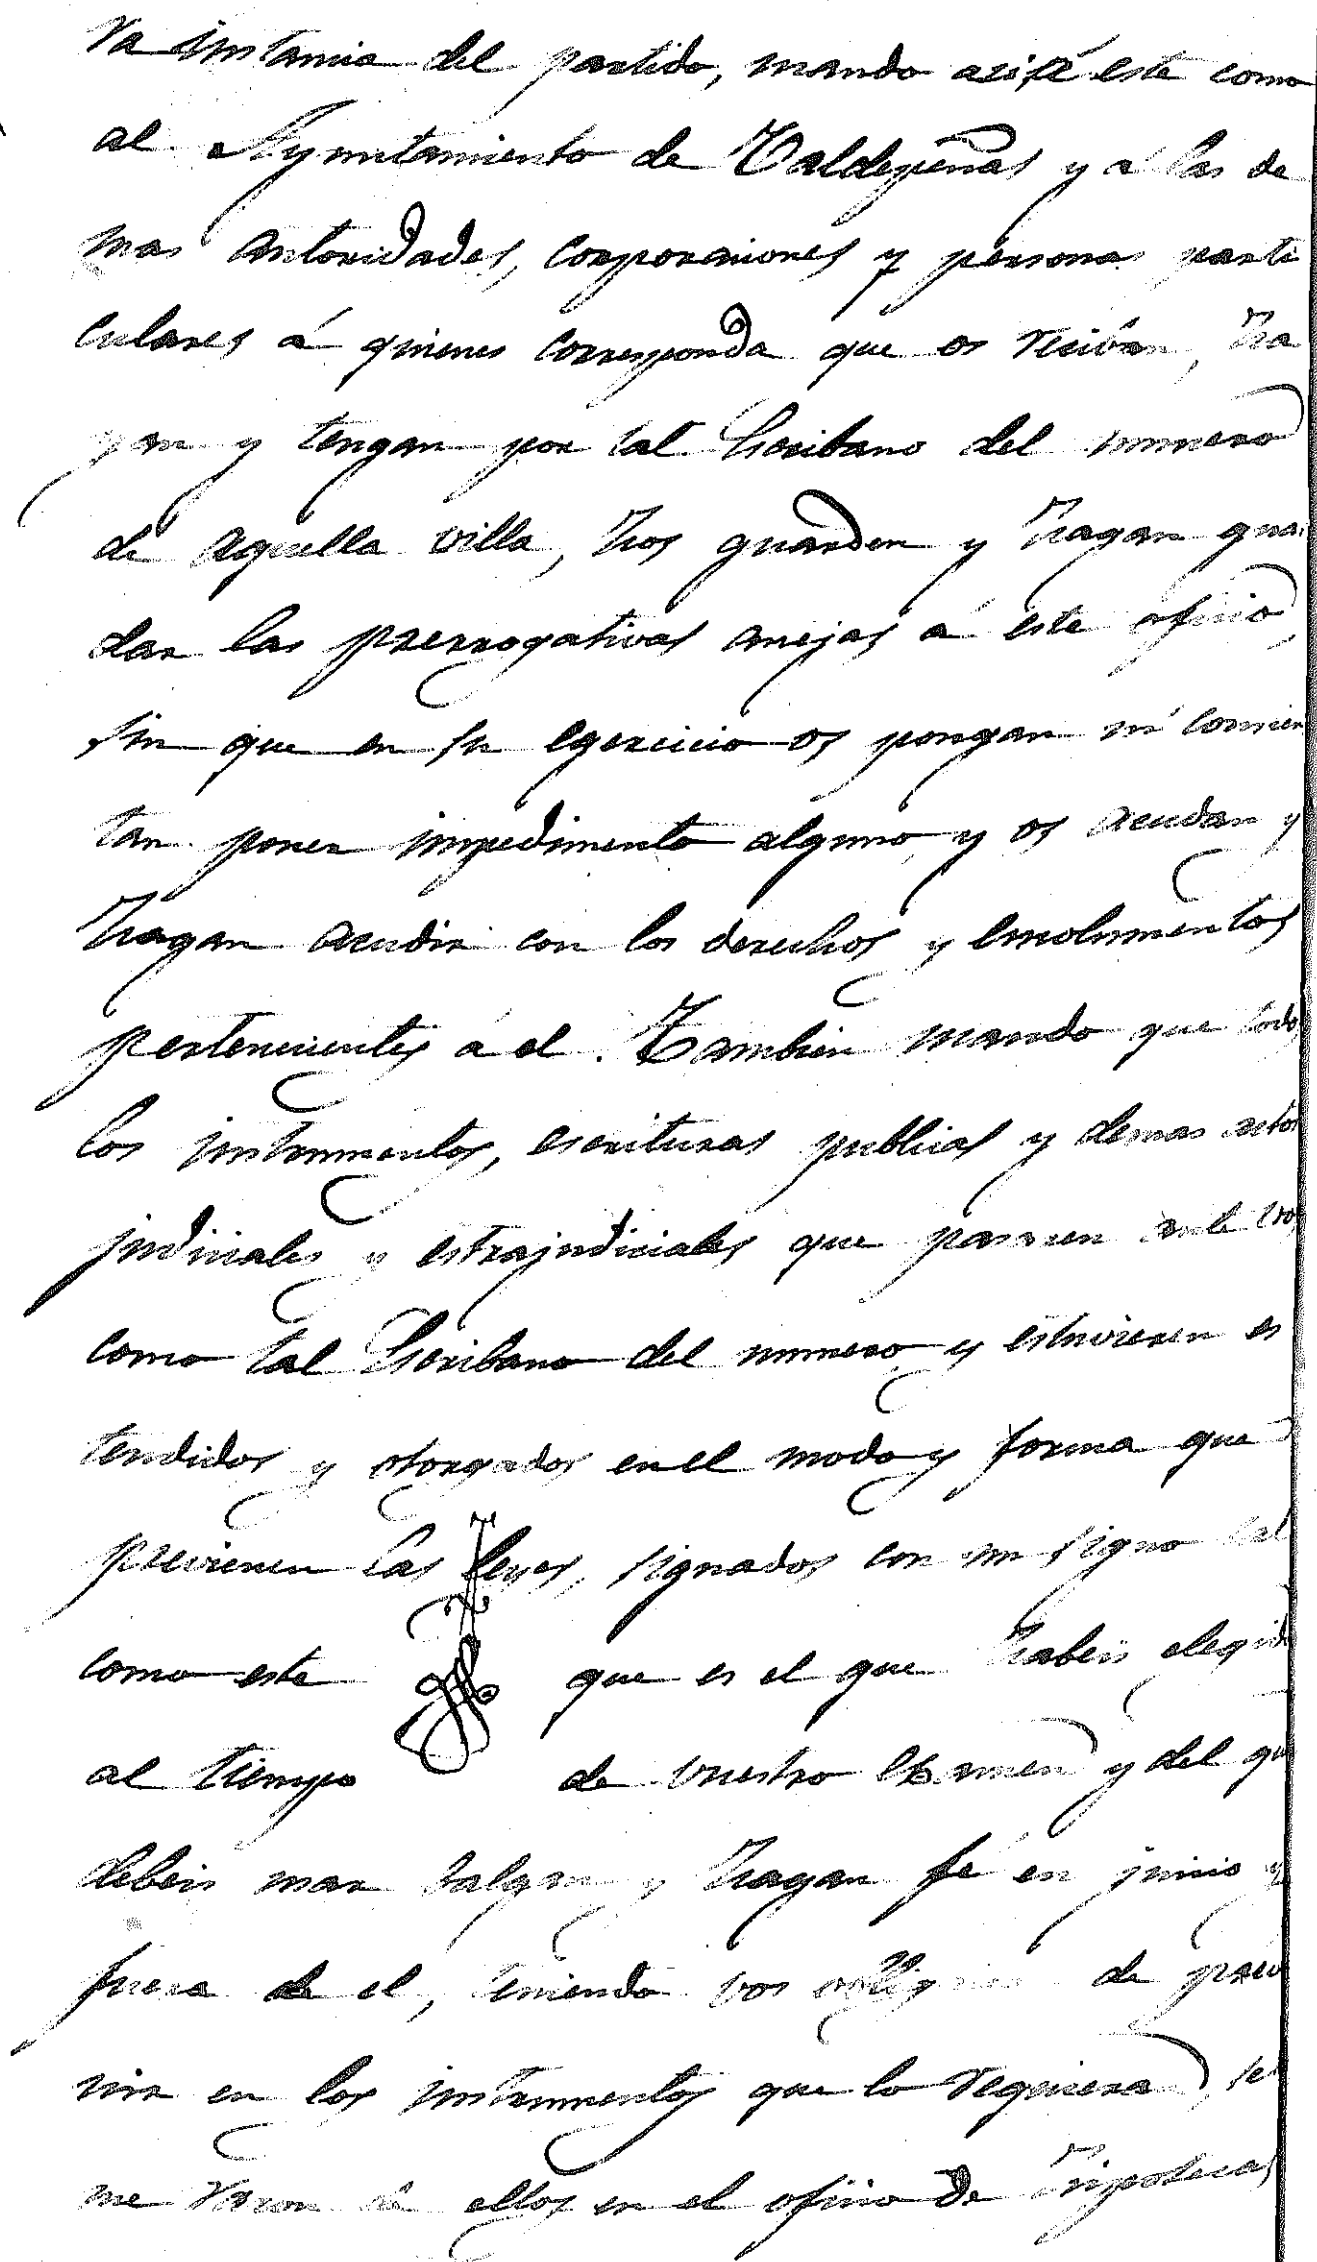 ra instancia del partido, mando asi á este como
al Ayuntamiento de Valdepeñas y á las de
mas autoridades, corporaciones y personas parti
culares á quienes corresponda que os reciban, ha
yan y tengan por tal Escribano del numero
de aquella villa, hos guarden y hagan gua
dar las prerrogativas anejas á este oficio,
sin que en su egercicio os pongan ni consien
tan poner impedimento alguno, y os acudan y
hagan acudir con los derechos y emolumentos
pertenecientes á el. Tambien mando que todos
los instrumentos, escrituras publicas y demas autos
judiciales y estrajudiciales que pasaren ante vos
como tal Escribano del numero y estuvieren es
tendidos y otorgados en el modo y forma que
previenen las leyes, signados con un signo tal
como este que es el que habeis elegido
al tiempo de vuestro examen y del que
debeis usar valgan y hagan fé en juicio y
fuera de el, teniendo vos de preve
nir en los instrumentos que lo requiera, se
me razon de ellos en el oficio de hipotecas